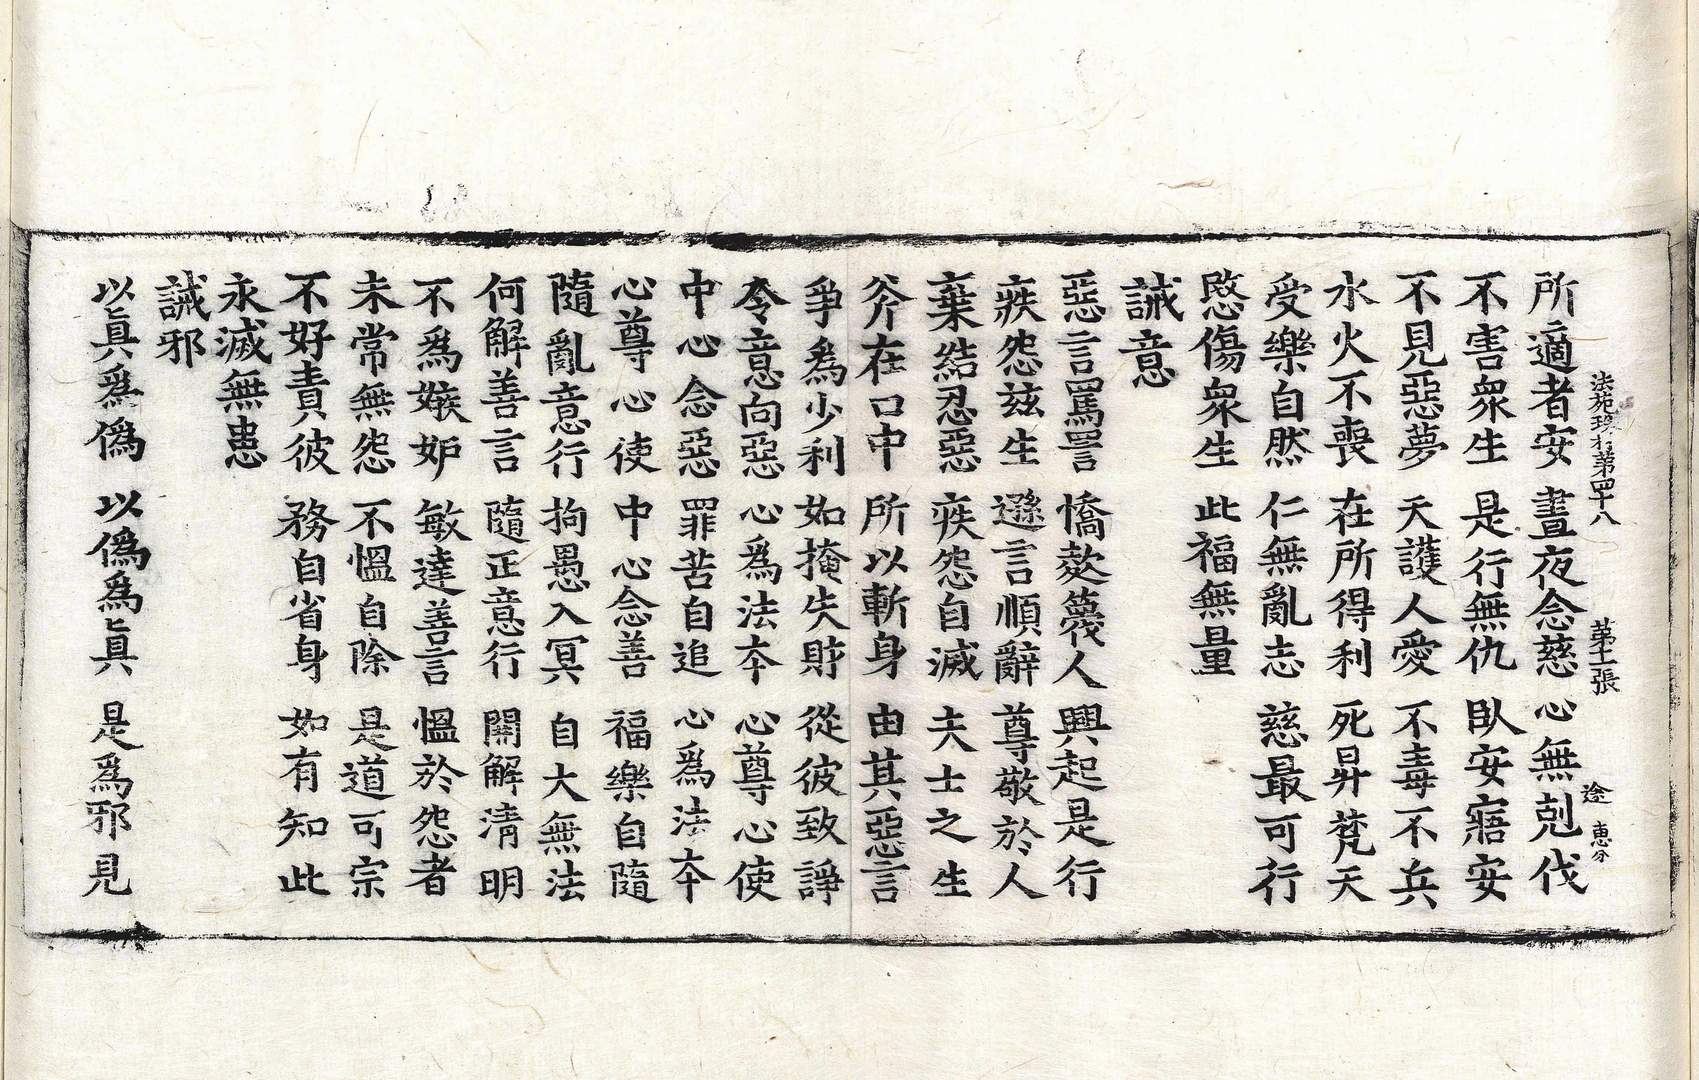 法苑珠林第四十八 第十一張 途 惠分
所適者安 晝夜念慈 心無剋伐
不害衆生 是行無仇 臥安寤安
不見惡夢 天護人愛 不毒不兵
水火不喪 在所得利 死昇梵天
受樂自然 仁無亂志 慈最可行
愍傷衆生 此福無量
誡意
惡言罵詈 憍㱄蔑人 興起是行
疾怨玆生 遜言順辭 尊敬於人
棄結忍惡 疾怨自滅 夫士之生
斧在口中 所以斬身 由其惡言
爭爲少利 如掩失財 從彼致諍
令意向惡 心爲法本 心尊心使
中心念惡 罪苦自追 心爲法本
心尊心使 中心念善 福樂自隨
隨亂意行 拘愚入冥 自大無法
何解善言 隨正意行 開解清明
不爲嫉妒 敏達善言 慍於怨者
未常無怨 不慍自除 是道可宗
不好責彼 務自省身 如有知此
永滅無患
誡邪
以眞爲僞 以僞爲眞 是爲邪見